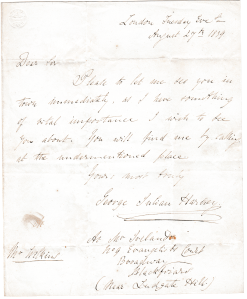 London Tuesday Eve
August 27th 1839
Dear Sir
Please to let me see you in
town immediately, as I have something
of vital importance I wish to see
you about. You will find me by calling
at the undermentioned place
Yours most truly
George Julian Harney
At Mr Ireland
No 9 Evangelist Court
Broadway
Blackfriars
(Near Ludgate Hill)
Mr